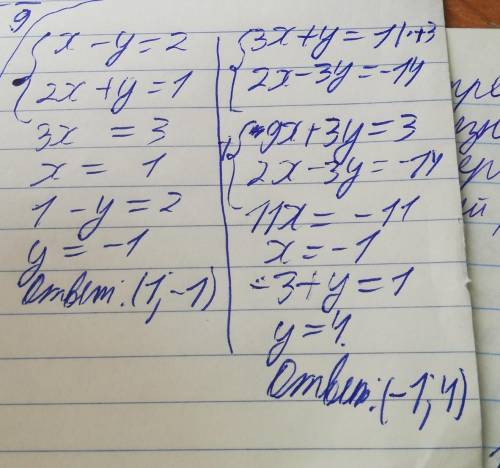 9
x - y = 2
2x + y = 1
3x = 3
x = 1
1 - y = 2
y = -1
Ответ: (1; -1)
3x + y = 1 | · 3
2x - 3y = -14
9x + 3y = 3
2x - 3y = -14
11x = -11
x = -1
-3 + y = 1
y = 4.
Ответ: (-1; 4)